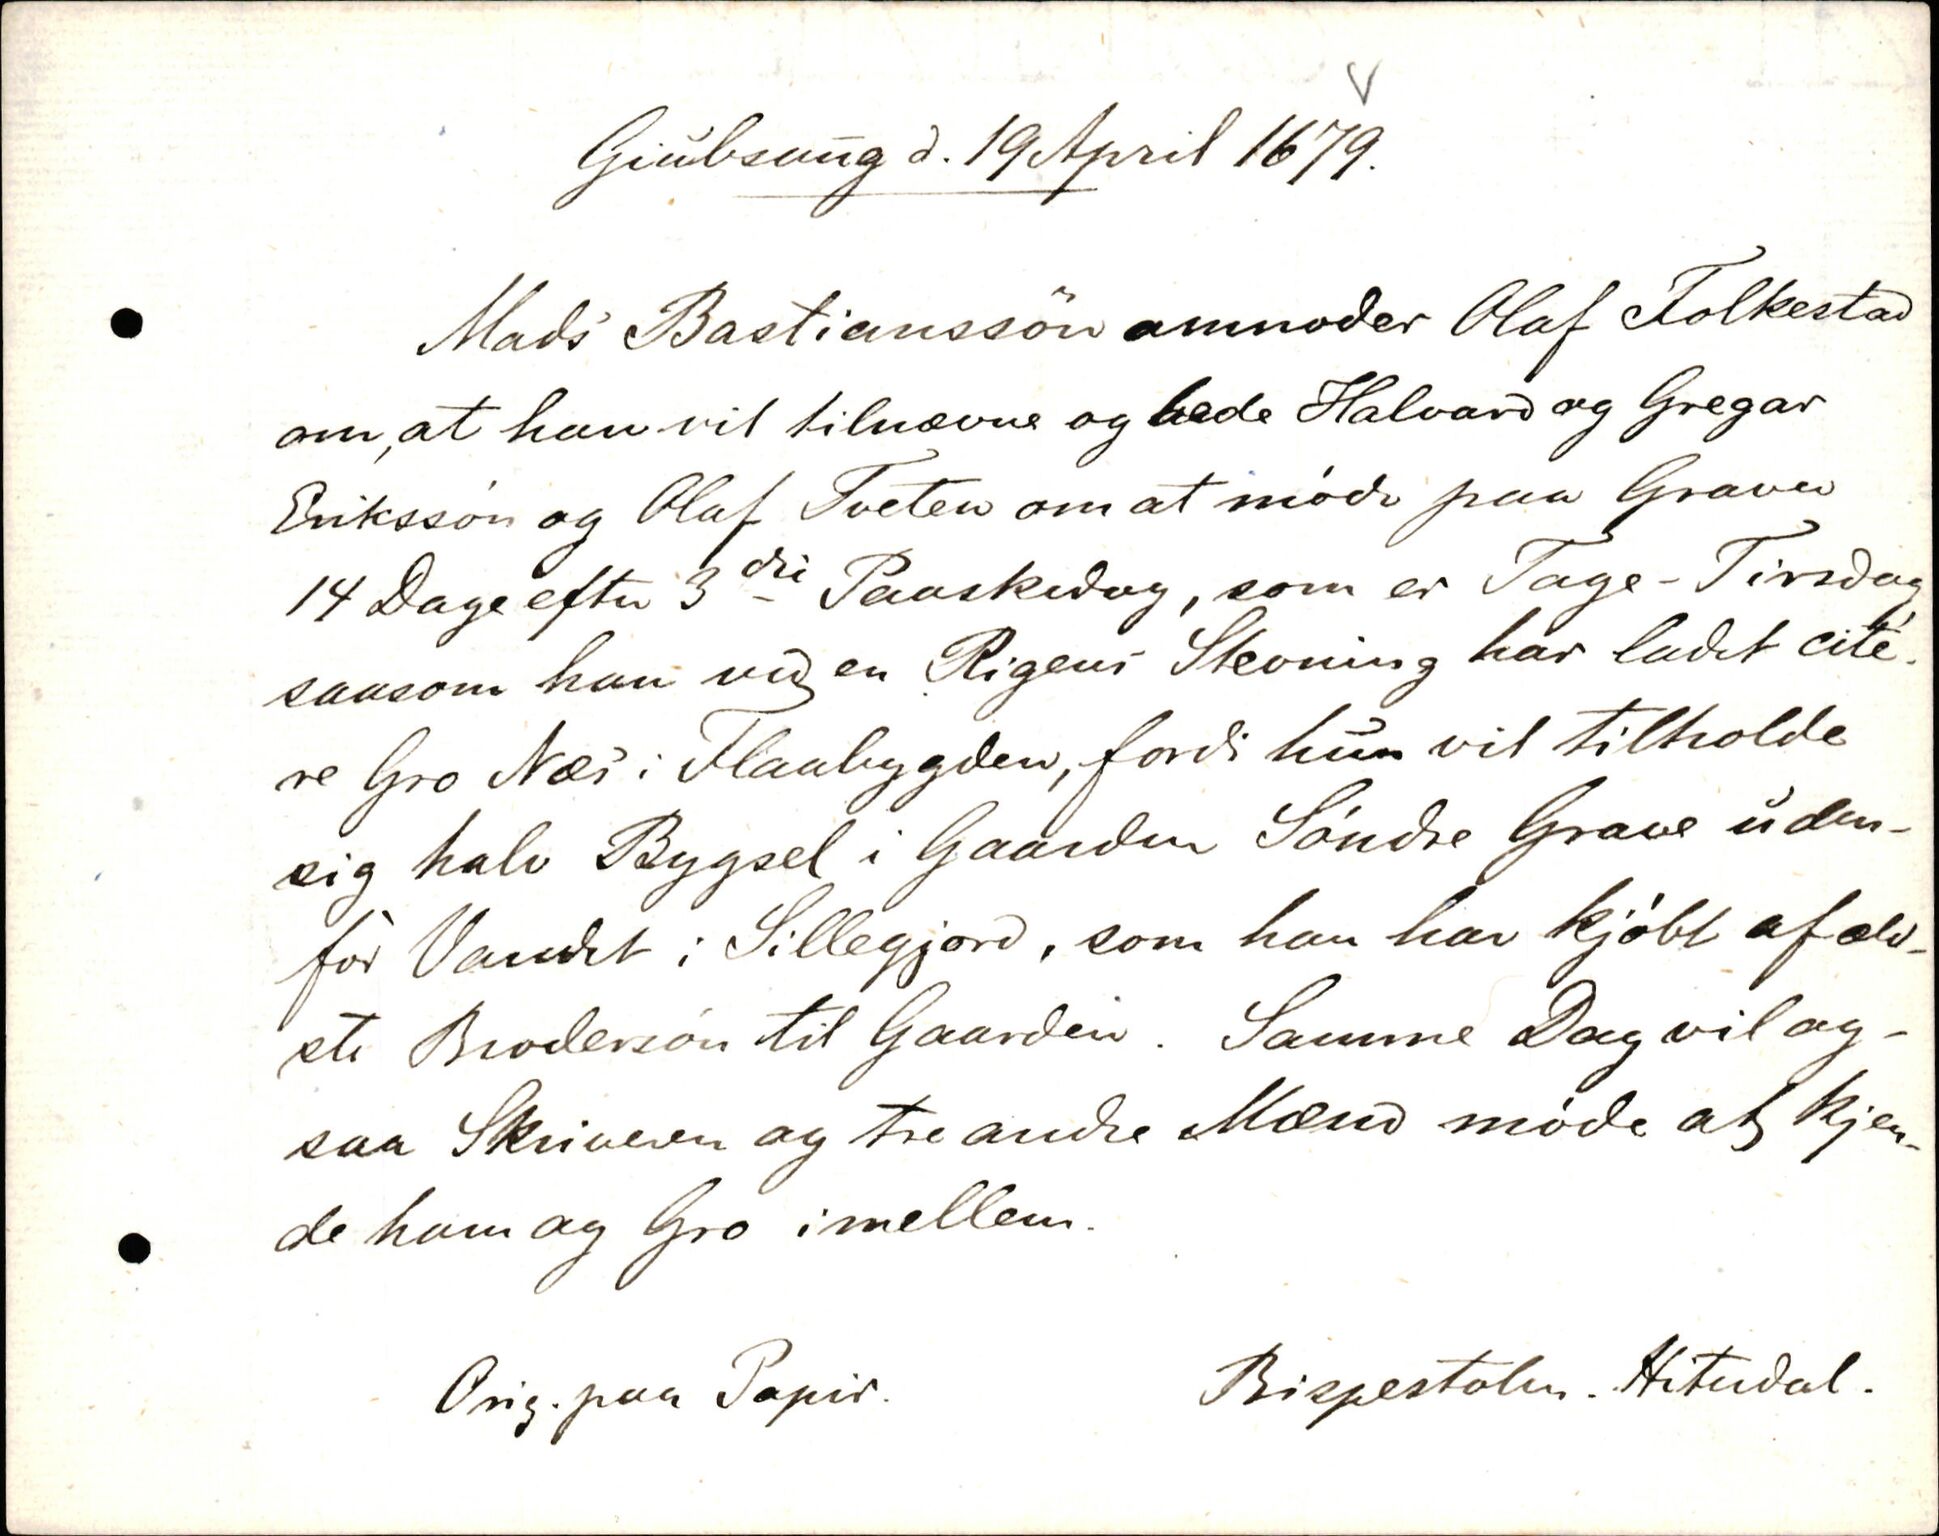 Giubsung d. 19 April 1679.
Mads Bastianssön anmoder Olaf Folkestad
om, at han vil tilnævne og bede Halvard og Gregar
Erikssön og Olaf Tveten om at möde paa Graver
14 Dage efter 3die Paaskedag, som er Tage-Tirsdag,
saasom han ved en Rigens Stevning har ladet cite-
re Gro Næs i Flaabygden, fordi hun vil tilholde
sig halv Bygsel i Gaarden Söndre Grave uden-
for Vandet i Sillegjord, som han har kjöbt af æld-
ste Brodersön til Gaarden. Samme Dag vil og-
saa Skriveren og tre andre Mænd möde at kjen-
de ham og Gro imellem.
Orig. paa Papir.
Bispestolen. Hiterdal.